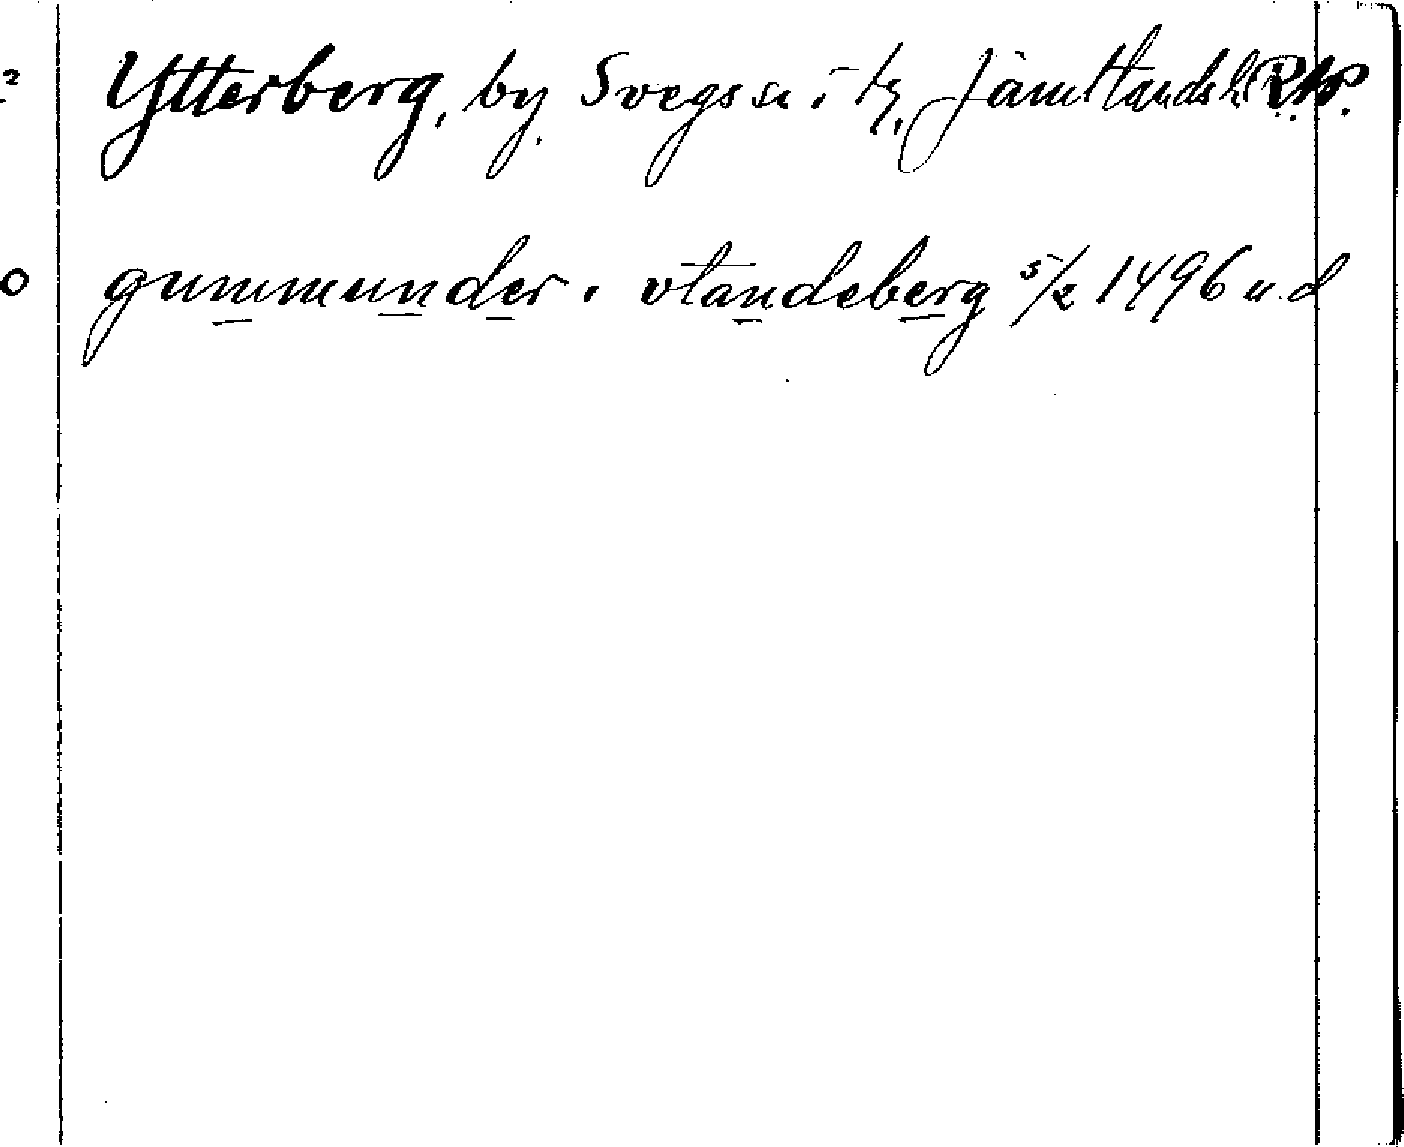 Ytterberg, by, Svegs sn i tg, Jämtlands l. RAP.
gummunder i vtandeberg 5/2 1496 u.d